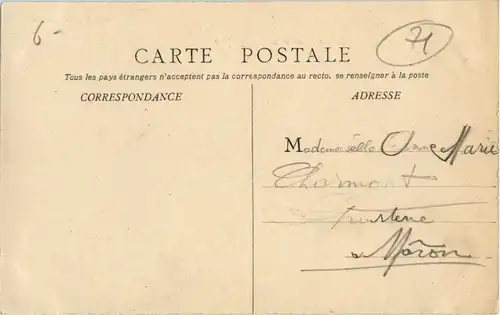 6-
71
CARTE POSTALE
Tous les pays étrangers n'acceptent pas la correspondance au recto. se renseigner à la poste
CORRESPONDANCE
ADRESSE
Mademoiselle Anne Marie
Charmont
a Mâcon